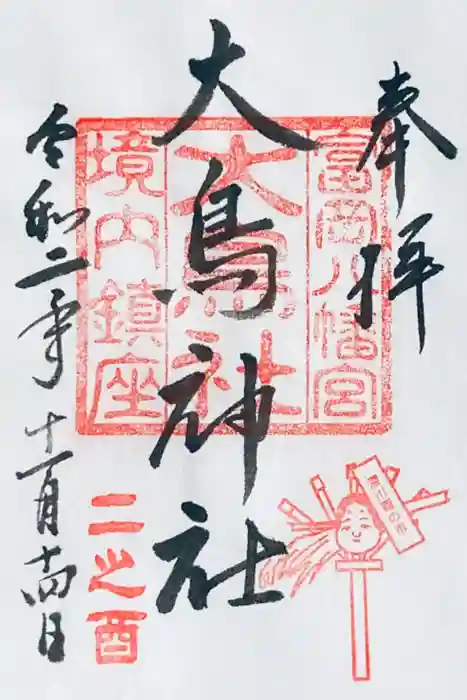 奉拝
大鳥神社
富岡八幡宮
大鳥神社
境内鎮座
令和二年十一月十四日
二之酉